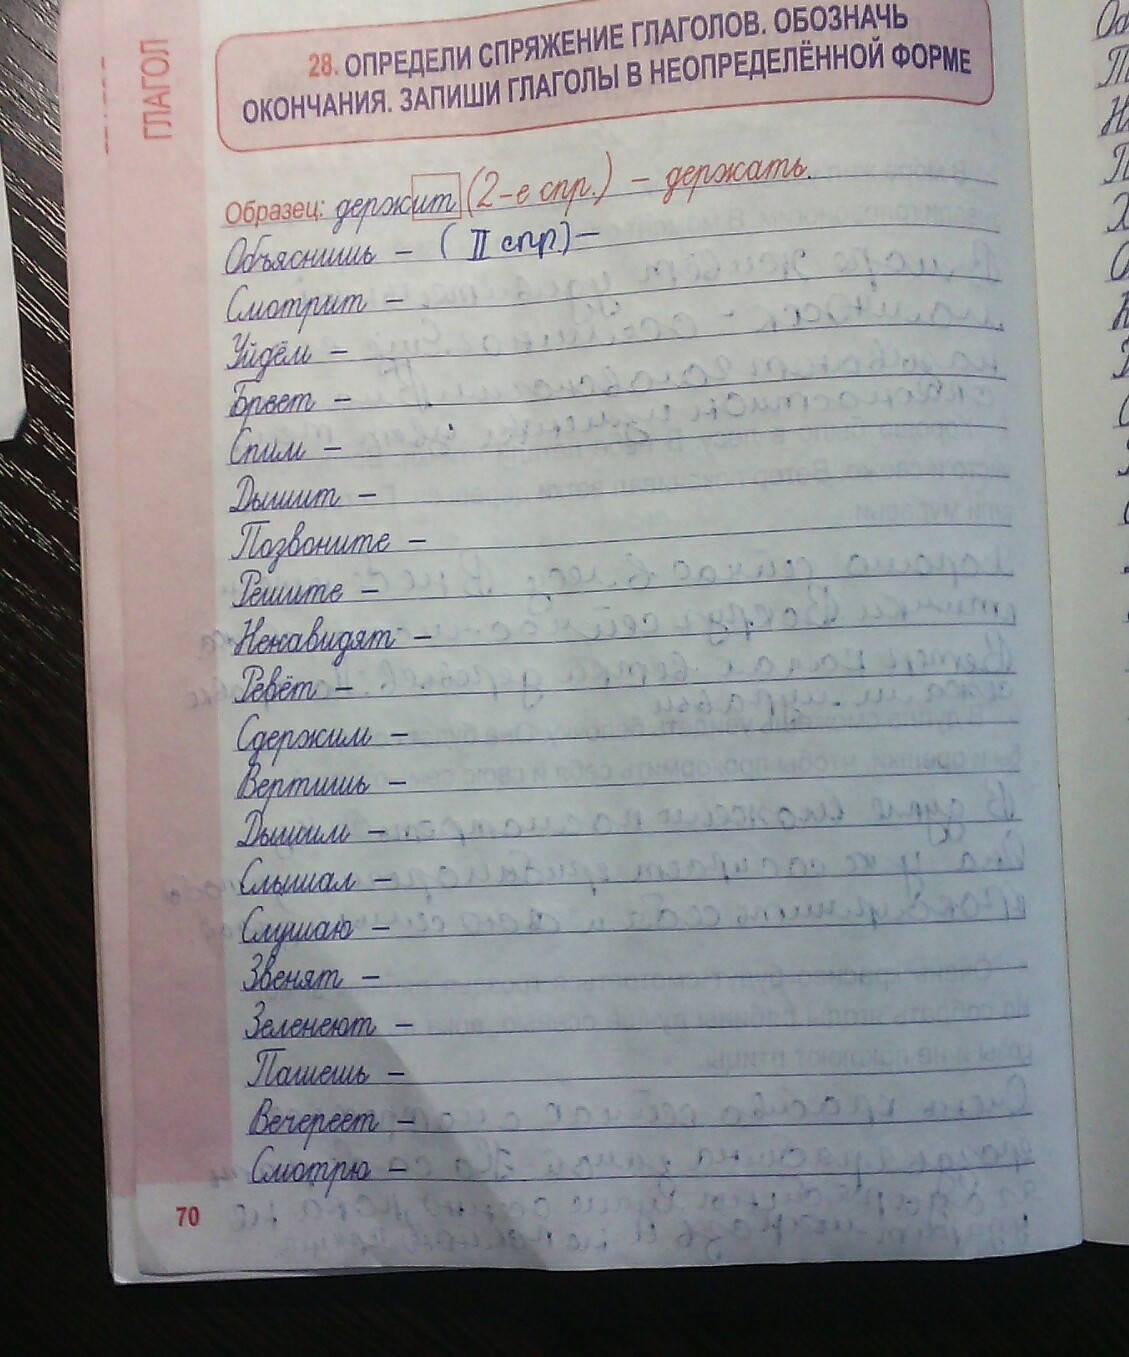 ГЛАГОЛ
28. ОПРЕДЕЛИ СПРЯЖЕНИЕ ГЛАГОЛОВ. ОБОЗНАЧЬ
ОКОНЧАНИЯ. ЗАПИШИ ГЛАГОЛЫ В НЕОПРЕДЕЛЁННОЙ ФОРМЕ
Образец: держит (2-е спр.) – держать.
Объяснишь – (II спр.) –
Смотрит –
Уйдём –
Бреет –
Спим –
Дышит –
Позвоните –
Решите –
Ненавидят –
Ревёт –
Сдержим –
Вертишь –
Дышим –
Слышал –
Слушаю –
Звенят –
Зеленеют –
Пашешь –
Вечереет –
Смотрю –
70